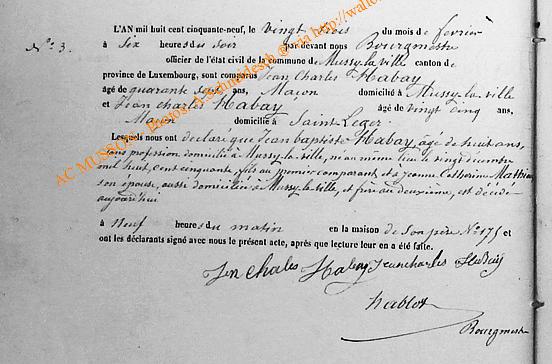 L'AN mil huit cent cinquante-neuf, le vingt trois du mois de février
N° 3. à six heures du soir par devant nous Bourgmestre
officier de l'état civil de la commune de Mussy-la-ville canton de
province de Luxembourg, sont comparus Jean Charles Habay
âgé de quarante ans, Maçon domicilié à Mussy-la-ville
et Jean charles Habay âgé de vingt cinq ans,
Maçon domicilié à Saint Leger.
Lesquels nous ont déclaré que Jean baptiste Habay, âgé de huit ans,
sans profession domicilié à Mussy-la-ville, né au même lieu le vingt décembre
mil huit cent cinquante, fils au premier comparant et à Jeanne Catherine Mathieu
son épouse, aussi domiciliée à Mussy-la-ville, et frère au deuxième, est décédé
aujourd'hui
à Neuf heures du matin en la maison de son père N° 175 et
ont les déclarants signé avec nous le présent acte, après que lecture leur en a été faite.
Jen Charles Habay Jean charles Habay
Bourgmestre
AC MUSSON - Photos